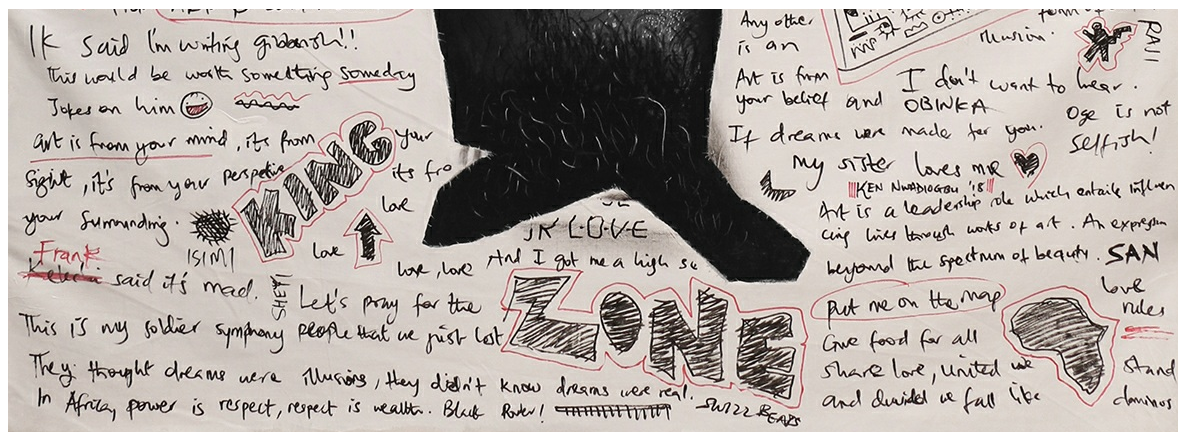 IK said I'm writing gibberish!!
This would be worth something someday
Jokes on him
Art is from your mind, its from your
sight, it's from your perspective its fro
your surrounding.
KING
ISIMI
love
love
love, love
Frank
said it's mad.
SHEYI
Let's pray for the
This is my soldier symphony people that we just lost
They thought dreams were illusions, they didn't know dreams were real.
In Africa, power is respect, respect is wealth. Black Power!
SWIZZ BEATS
JK LOVE
And I got me a high
ZONE
Any other
is an
illusion.
Art is from
your belief and
I don't want to hear.
OBINKA
RAJI
If dreams were made for you.
Oge is not
selfish!
My sister loves me
KEN NWADIOGBU '18
Art is a leadership role which entails influen
cing lives through works of art. An expression
beyond the spectrum of beauty. SAN
put me on the map
love
rules
Give food for all
share love, united we stand
and divided we fall like dominos